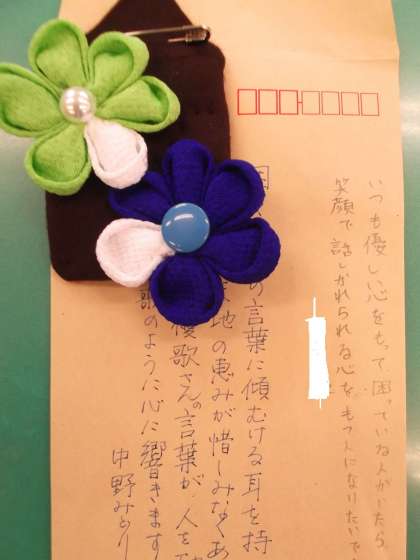 いつも優しい心をもって困っている人がいたら、
笑顔で話しかけられる心をもつ人になりたいで
の言葉に傾むける耳を持
地の恵みが惜しみなくあ
歌さんの言葉が、人を
歌のように心に響きます
中野みどり